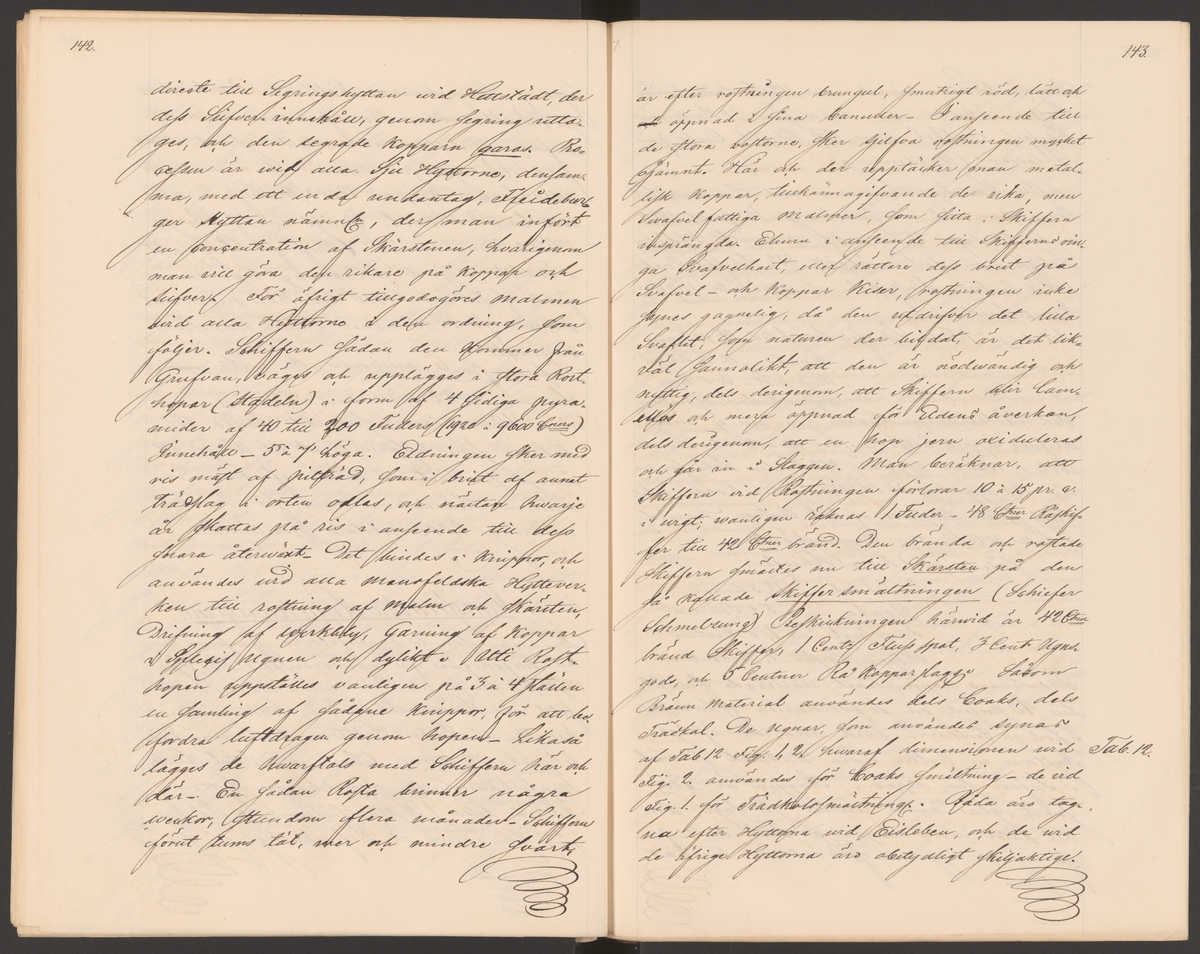 142.
directe till Segringshyttan wid Hettstädt, der
dess Silfver innehåll, genom segring utta-
ges, och den segrade kopparn garas. Pro-
cessen är wid alla Sju Hyttorne, densam-
ma, med ett enda undantag,
ger Hyttan nämnl., der man infört
en Concentration af Skärstenen, hvarigenom
man vill göra den rikare på Koppar och
Silfver. För öfrigt tillgodogöres malmen
vid alla Hyttorne i den ordning, som
följer. Schiffern sådan den kommer från
Grufvan, väges och upplägges i stora Rost-
hopar (Stadeln) i form af 4 sidiga pyra-
mider af 40 till 200 Fuders (1920 à 9600 Ctners)
Innehåll - 5 à 7' höga. Eldningen sker med
ris mäst af pilträd, som i brist af annat
trädslag i orten odlas, och nästan hwarje
år skattas på ris i anseende till dess
snara återwäxt - Det bindes i Knippor, och
användes vid alla Mansfeldska Hyttever-
ken till rostning af malm och skärsten,
Drifning af werkbly, Garning af Koppar
i Spleiss Ugnen och dylikt. Uti Rost-
hopen uppställes vanligen på 3 à 4 ställen
en samling af sådane Knippor, för att be-
fordra luftdragen genom hopen - Likaså
lägges de hwarftals med Schiffern här och
där -. En sådan Rosta brinner några
weckor, stundom flera månader - Schiffern
förut tums tät, mer och mindre svart,
143.
är efter rostningen brungul, smutsigt röd, lätt och
öppnad i sina kanter - I anseende till
de stora rostorne, sker sjelfva rostningen mycket
ojämnt. Här och der upptäcker man metal-
lisk koppar, tillkännagifvande de rika, men
Svafvel fattiga malmer, som sitta i Skiffern
insprängda. Ehuru i anseende till Skifferns rin-
ga Svafvelhalt, eller rättare dess brist på
Svafvel - och Koppar Kiser, rostningen icke
synes gagnelig, då den utdrifver det lilla
Svaflet, som naturen der bildat, är det lik-
väl sannolikt, att den är nödwändig och
nyttig, dels derigenom, att Skiffern blir
och mera öppnad för Eldens åverkan,
dels derigenom, att en hop jern oxideras
och går in i Slaggen. Man beräknar, att
Skiffern vid Rostningen förlorar 10 à 15 pr. c.
i wigt; wanligen räknas 1 Fuder - 48 Ctner Råskif-
fer till 42 Ctner bränd. Den brända och rostade
Skiffern smältes nu till Skärsten på den
så kallade skiffersmältningen (Schiefer
Schmelzung) Beskickningen härwid är 42 Ctner
bränd Skiffer, 1 Centr Fluss spat, 3 Cent Ugns-
gods, och 5 Centner Rå Kopparslagg. Såsom
Bränn Material användes dels Coaks, dels
Träkol. De ugnar, som användes synas
af Tab 12 Fig. 1, 2, hwaraf dimensionen wid
Tab. 12.
Fig. 2. användes för Coaks smältning - de vid
Fig. 1. för Trädkolssmältning. Båda äro tag-
na efter Hyttorna wid Eisleben, och de wid
de öfrige Hyttorna äro obetydligt skiljaktige.